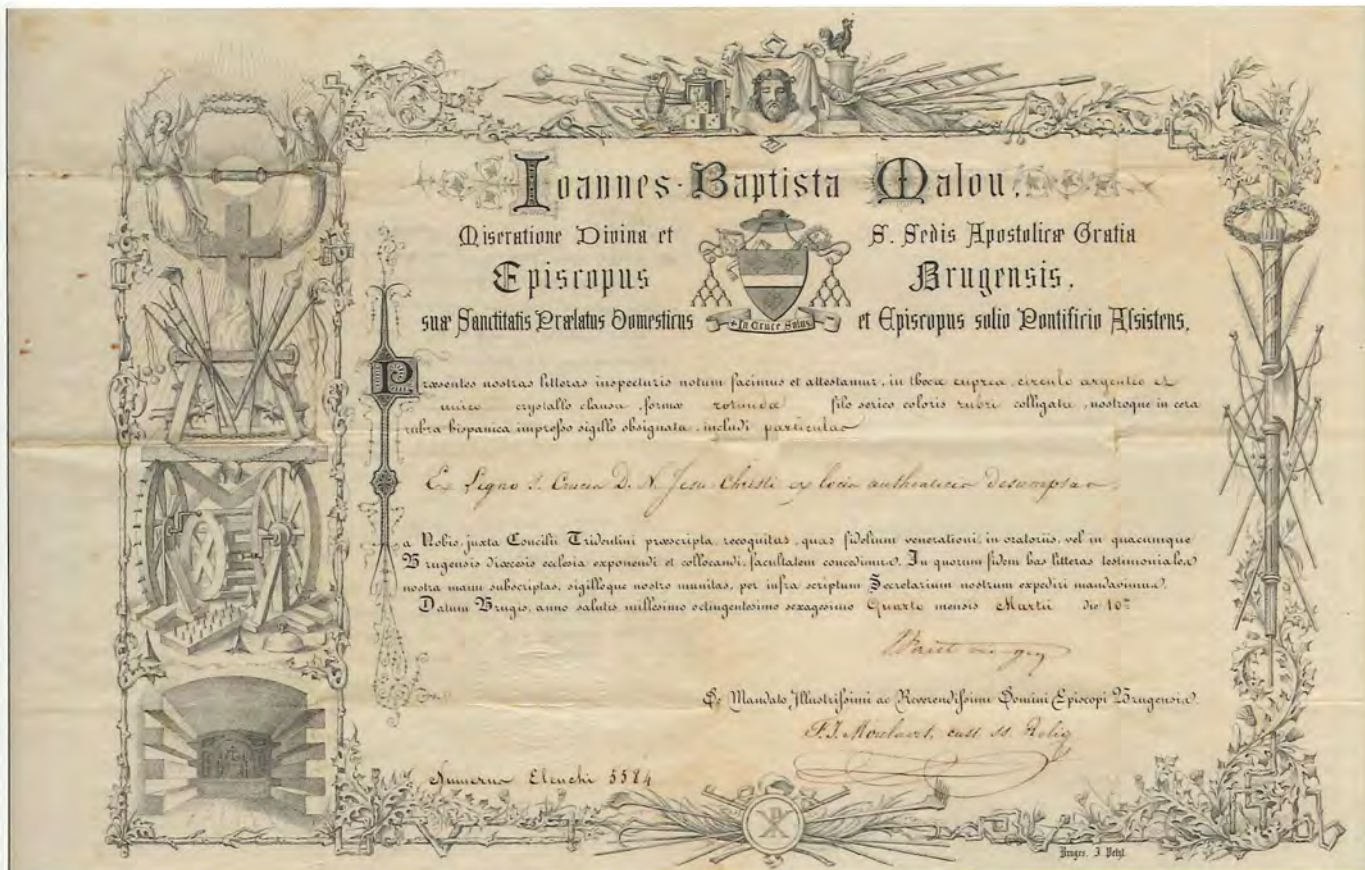 Ioannes-Baptista Malou,
Miseratione Divina et S. Sedis Apostolicæ Gratia
Episcopus Brugensis,
suæ Sanctitatis Prælatus Domesticus et Episcopus solio Pontificio Assistens,
In Cruce Salus
Præsentes nostras litteras inspecturis notum facimus et attestamur, in theca cuprea, circulo argenteo et
unico crystallo clausa, formæ rotundæ filo serico coloris rubri colligata, nostroque in cera
rubra hispanica impresso sigillo obsignata, includi particulas
Ex Ligno S. Crucis D. N. Jesu Christi ex locis authenticis desumptas,
a Nobis, juxta Concilii Tridentini præscripta, recognitas, quas fidelium venerationi, in oratoriis, vel in quacumque
Brugensis diæcesis ecclesia exponendi et collocandi, facultatem concedimus. In quorum fidem has litteras testimoniales
nostra manu subscriptas, sigilloque nostro munitas, per infra scriptum Secretarium nostrum expediri mandavimus.
Datum Brugis, anno salutis millesimo octingentesimo sexagesimo Quarto mensis Martii die 10ª
De Mandato Illustrissimi ac Reverendissimi Domini Episcopi Brugensis.
F. J. Moulaert, cust. ss. Reliq
Numerus Elenchi 5584
Bruges. J. Petyt